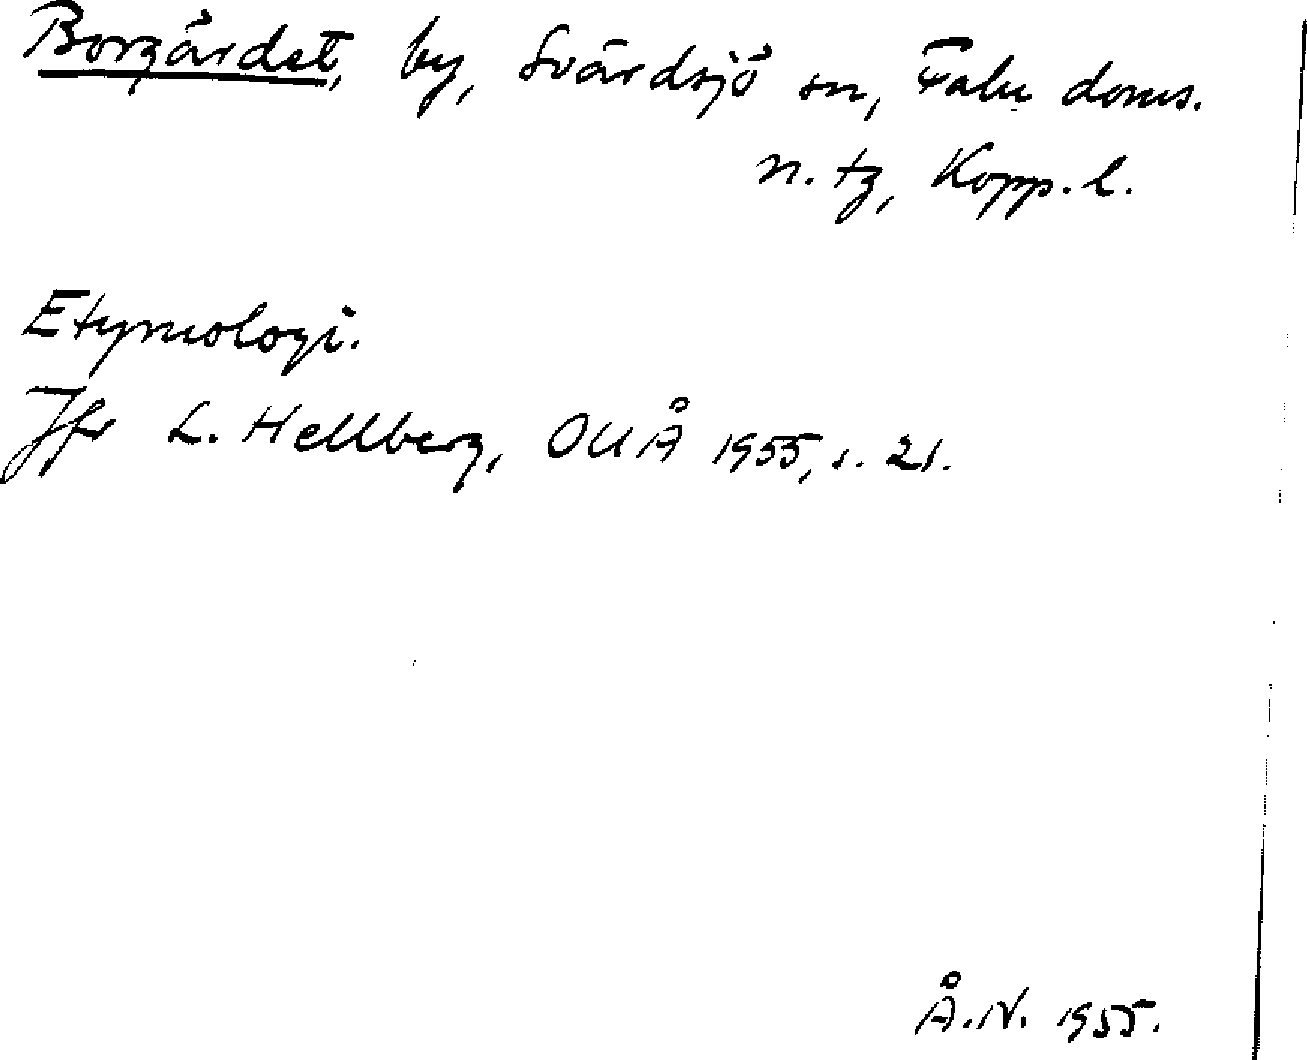 Borgärdet, by, Svärdsjö sn, Falu doms.
n. tg, Kopp. l.
Etymologi.
Jfr L. Hellberg, OUÅ 1955, s. 21.
Å.N. 1955.